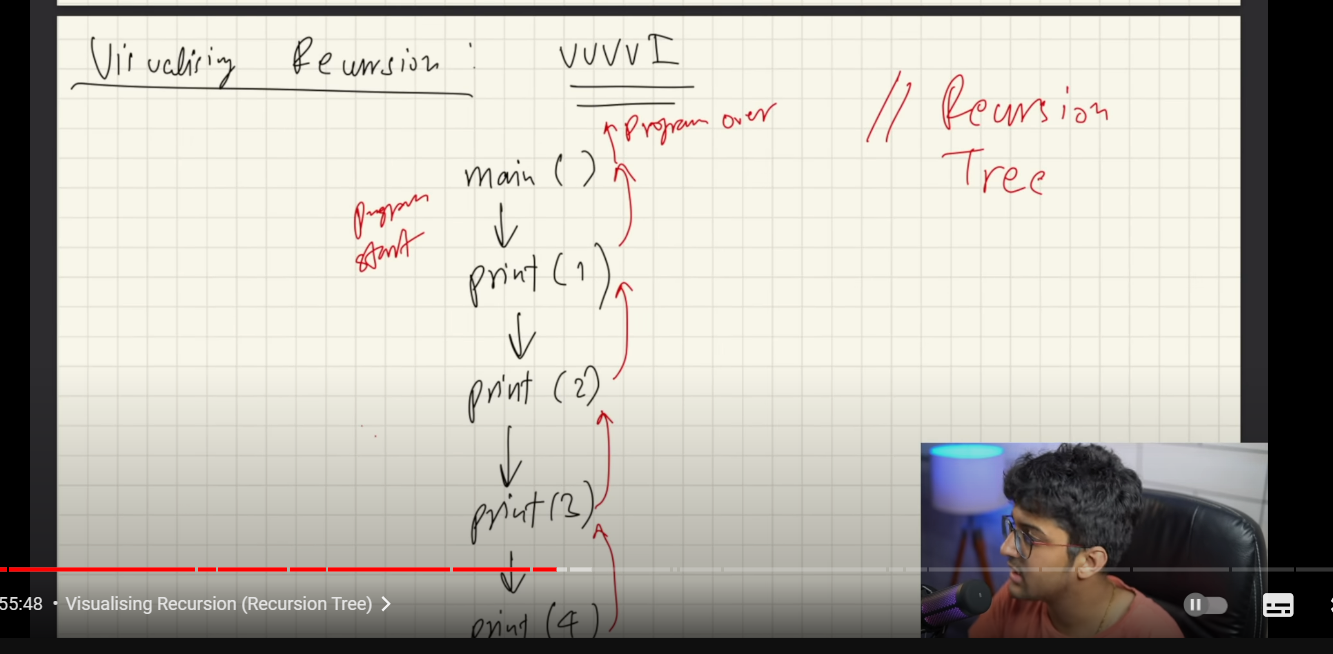 Visualising Recursion : VVVV I
// Recursion
Tree
Program over
main ( )
Program
start
print (1)
print (2)
print (3)
print (4)
55:48 • Visualising Recursion (Recursion Tree) >